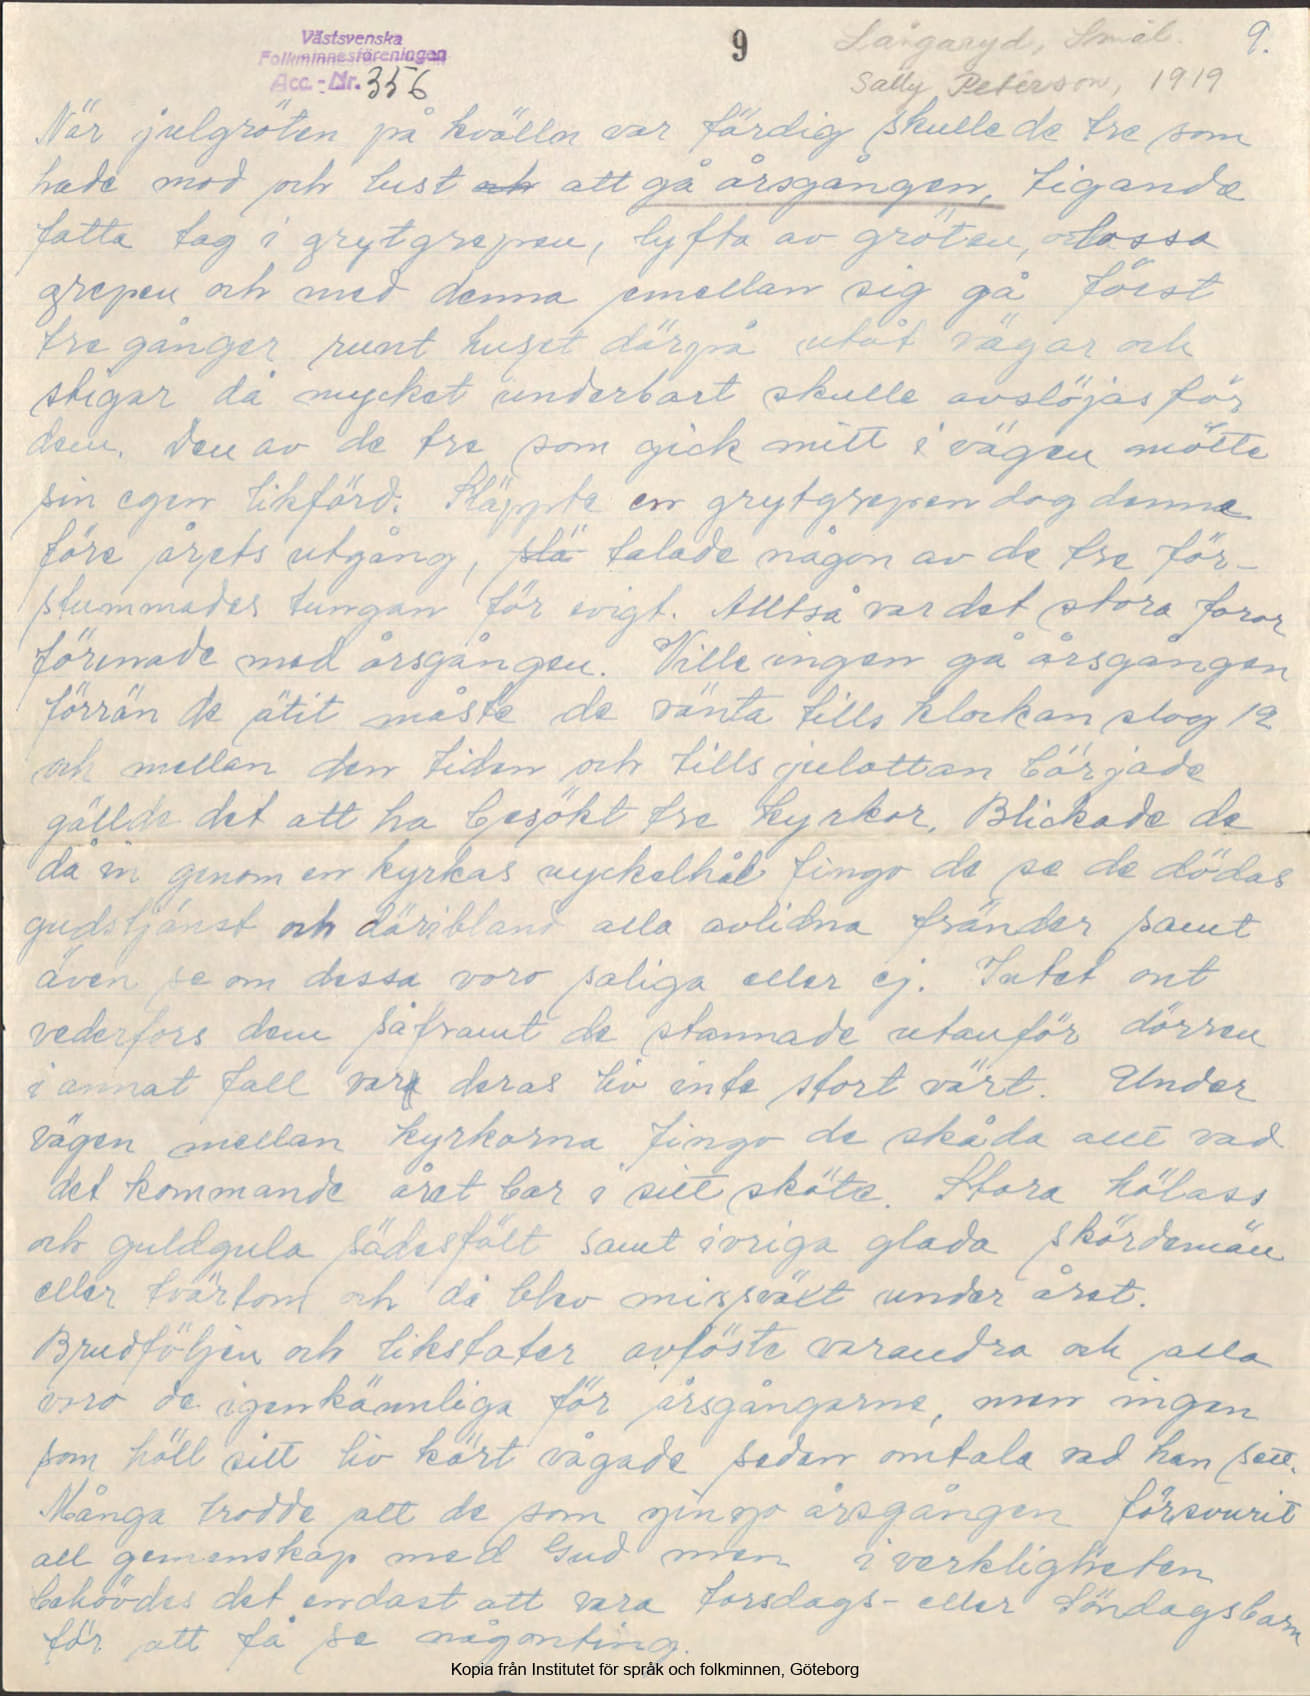 Västsvenska
Folkminnesföreningen
Acc.-Nr. 356
9
Långaryd, Smål.
9.
Sally Peterson, 1919
När julgröten på kvällen var färdig skulle de tre som
hade mod och lust och att gå årsgången, tigande
fatta tag i grytgrepen, lyfta av gröten, lossa
grepen och med denna emellan sig gå först
tre gånger runt huset därpå utåt vägar och
stigar då mycket underbart skulle avslöjas för
dem. Den av de tre som gick mitt i vägen mötte
sin egen likfärd. Släppte en grytgrepen dog denne
före årets utgång, slä talade någon av de tre för-
stummades tungan för evigt. Alltså var det stora faror
förenade med årsgången. Ville ingen gå årsgången
förrän de ätit måste de vänta tills klockan slog 12
och mellan den tiden och tills julottan började
gällde det att ha besökt tre kyrkor. Blickade de
då in genom en kyrkas nyckelhål fingo de se de dödas
gudstjänst och däribland alla avlidna fränder samt
även se om dessa voro saliga eller ej. Intet ont
vederfors dem såframt de stannade utanför dörren
i annat fall var deras liv inte stort värt. Under
vägen mellan kyrkorna fingo de skåda allt vad
det kommande året bar i sitt sköte. Stora hölass
och guldgula sädesfält samt ivriga glada skördemän
eller tvärtom och då blev missväxt under året.
Brudföljen och likstater avlöste varandra och alla
voro de igenkännliga för årsgångarne, men ingen
som höll sitt liv kärt vågade sedan omtala vad han sett.
Många trodde att de som gingo årsgången försvurit
all gemenskap med Gud men i verkligheten
behövdes det endast att vara torsdags- eller söndagsbarn
för att få se någonting.
Kopia från Institutet för språk och folkminnen, Göteborg